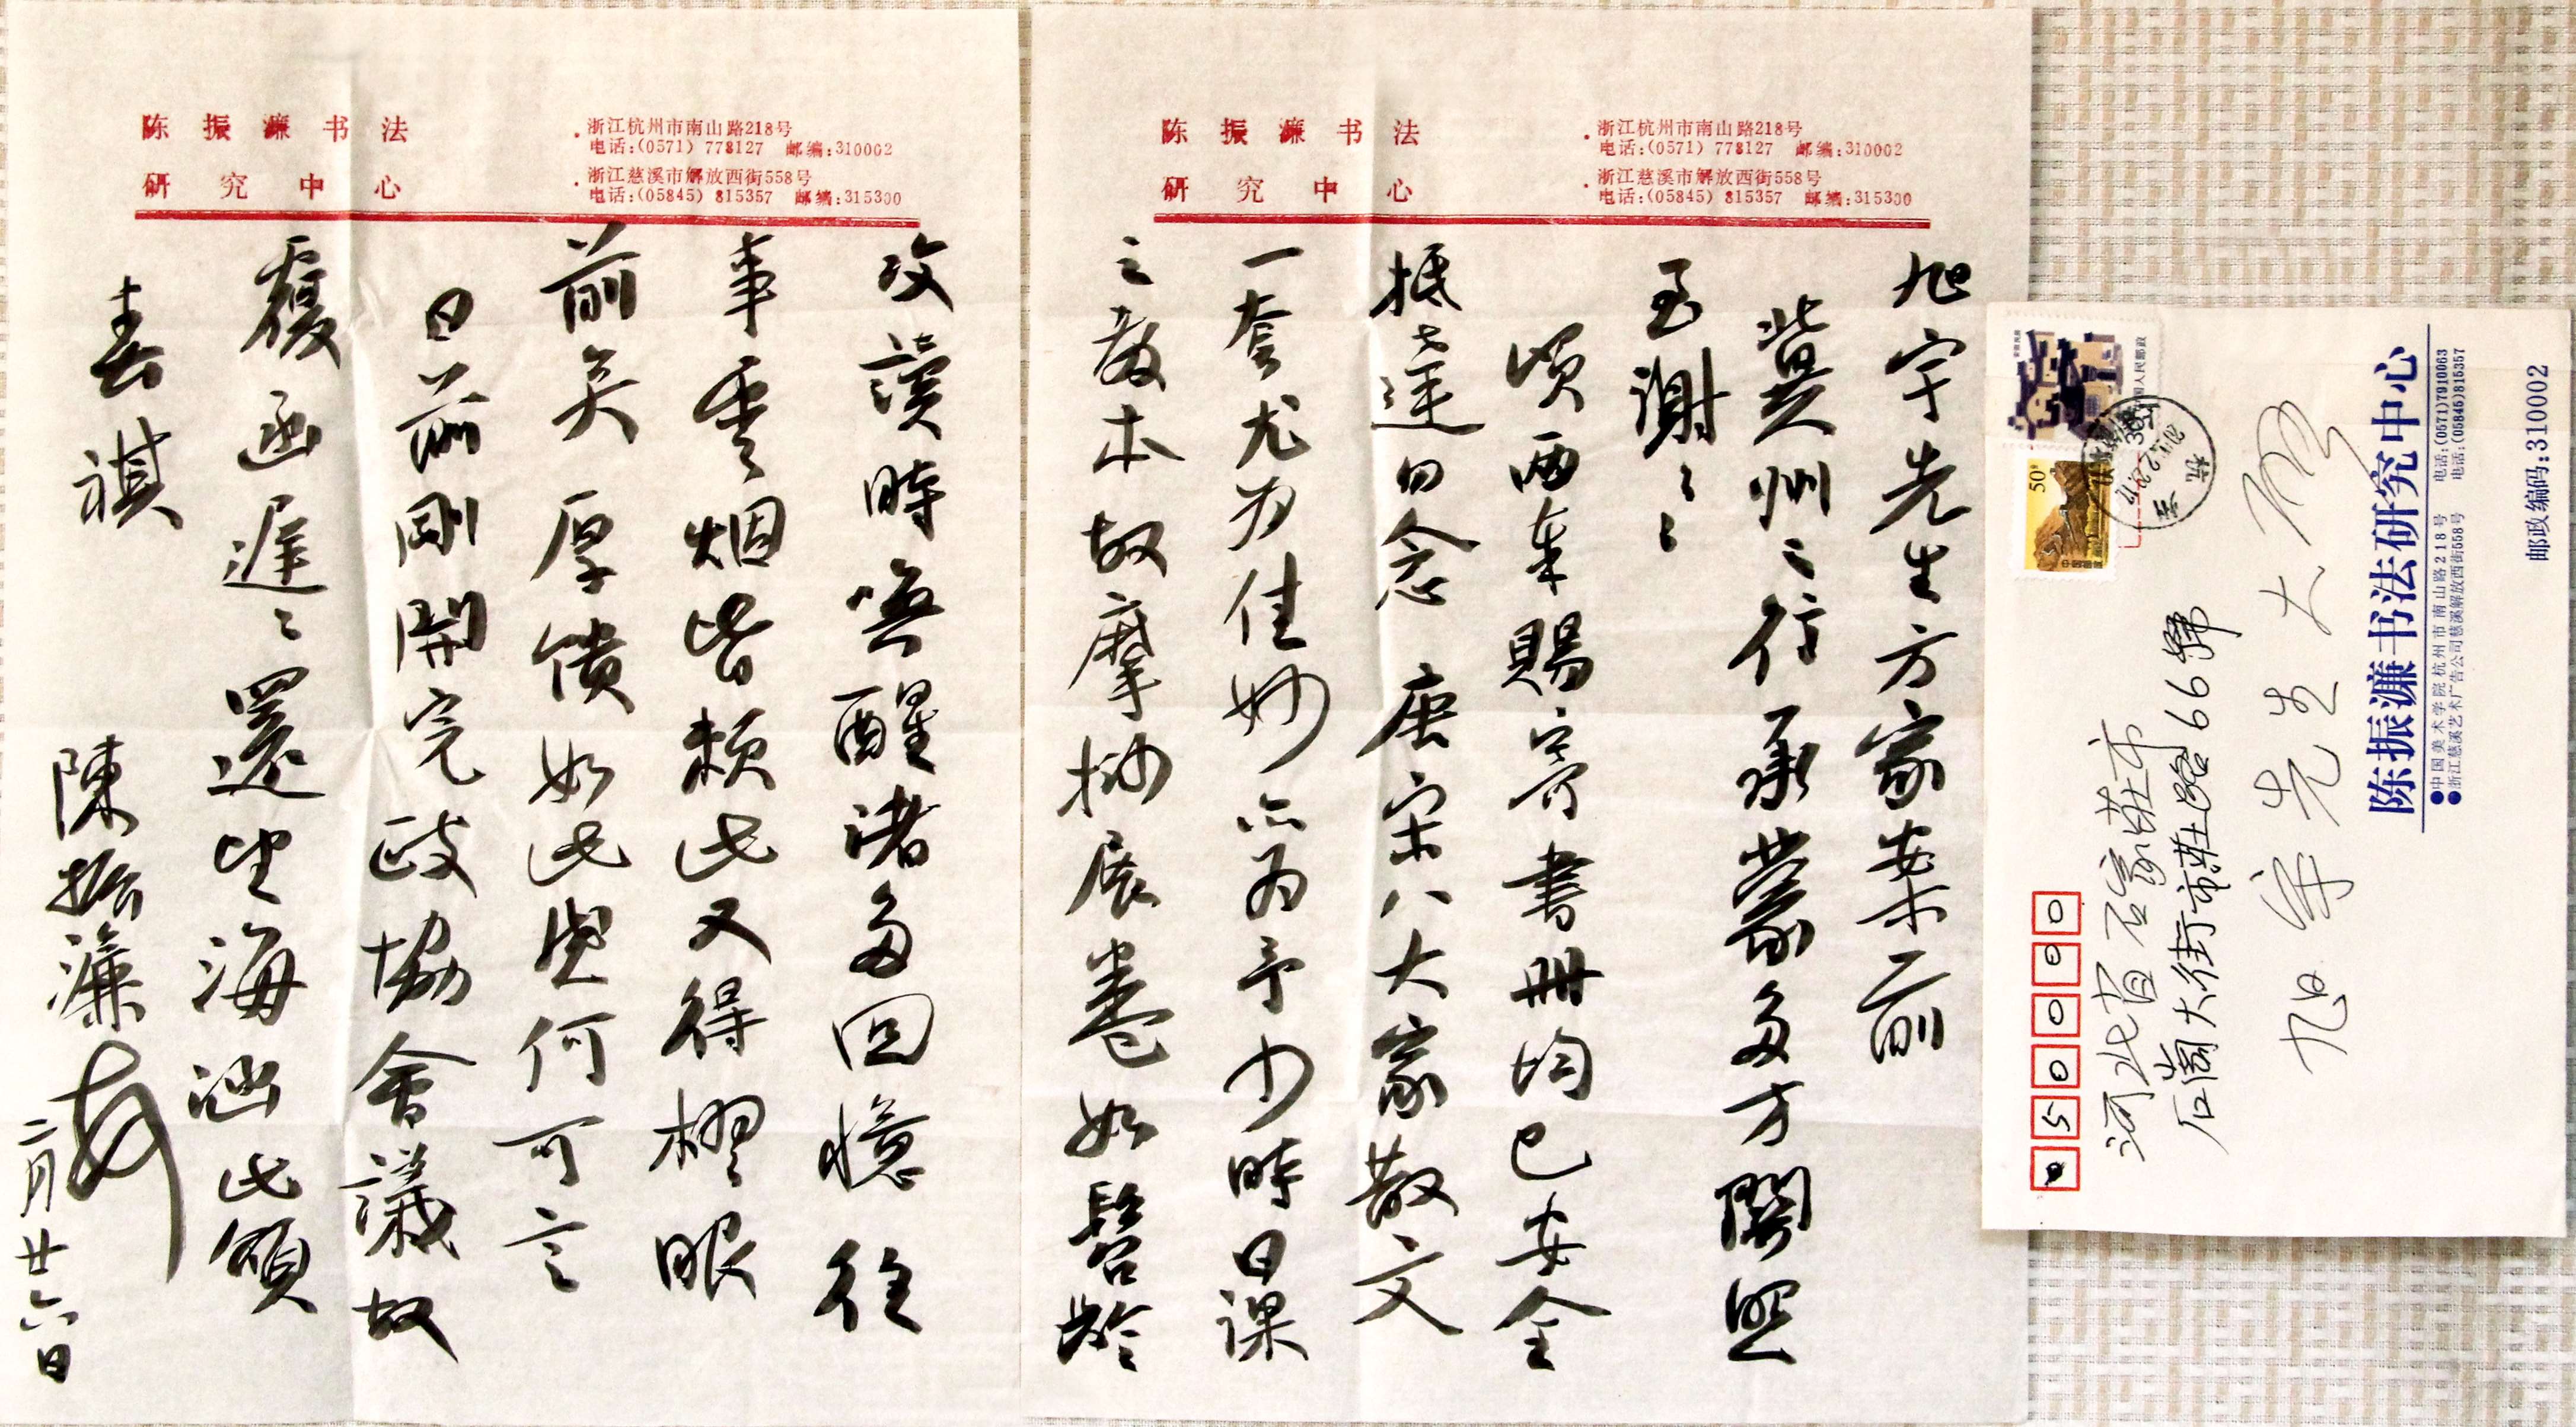 陈振濂书法
研究中心
·浙江杭州市南山路218号
电话:(0571) 778127 邮编:310002
·浙江慈溪市解放西街558号
电话:(05845) 815357 邮编:315300
旭宇先生方家案前
冀州之行承蒙多方關照
至謝〻〻
頃两奉賜寄書冊均已安全
抵達勿念 唐宋八大家散文
一套尤为佳妙亦为予少時日課
之教本故摩挲展卷如髫齡
陈振濂书法
研究中心
·浙江杭州市南山路218号
电话:(0571) 778127 邮编:310002
·浙江慈溪市解放西街558号
电话:(05845) 815357 邮编:315300
攻讀時喚醒諸多回憶往
事雲烟皆赖此又得櫂眼
前矣 厚馈如此 何可言
日前剛開完政協會議故
覆函遲〻還望海涵此頌
春祺
陳振濂
二月廿六日
50分
杭州
050000
河北省石家莊市
石崗大街市莊路66號
旭宇先生大啟
陈振濂书法研究中心
●中国美术学院杭州市南山路218号 电话:(0571)7910063
●浙江慈溪艺术广告公司慈溪解放西街558号 电话:(05845)815357
邮政编码:310002